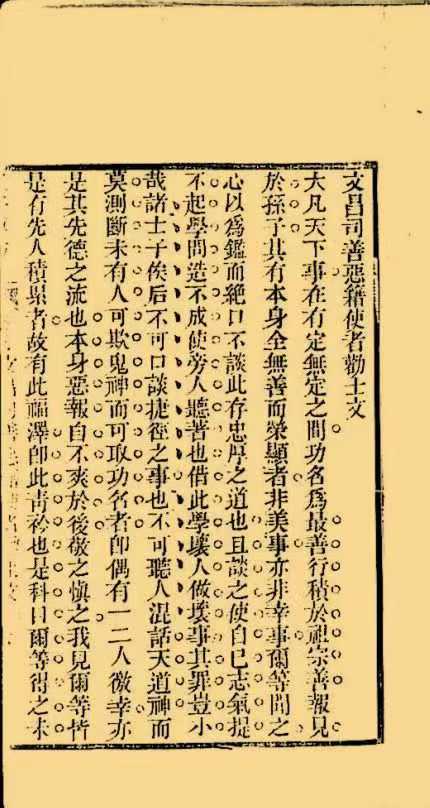 文昌司善惡籍使者勸士文
大凡天下事在有定無定之間功名爲最善行積於祖宗善報見
於孫子其有本身全無善而榮顯者非美事亦非幸事爾等聞之
心以爲鑑而絶口不談此存忠厚之道也且談之使自已志氣提
不起學問造不成使旁人聽著也借此學壞人做壞事其罪豈小
哉諸士子俟后不可口談捷徑之事也不可聽人混話天道神而
莫測斷未有人可欺鬼神而可取功名者卽偶有一二人徼幸亦
是其先德之流也本身惡報自不爽於後敬之慎之我見爾等皆
是有先人積累者故有此福澤卽此青衿也是科目爾等得之未